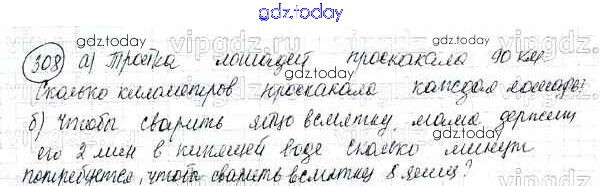 gdz.today
308 а) Тройка лошадей проскакала 90 км.
gdz.today
Сколько километров проскакала каждая лошадь?
б) Чтобы сварить яйцо всмятку, мама держит
его 2 мин в кипящей воде Сколько минут
потребуется, чтобы сварить всмятку 8 яиц?
gdz.today